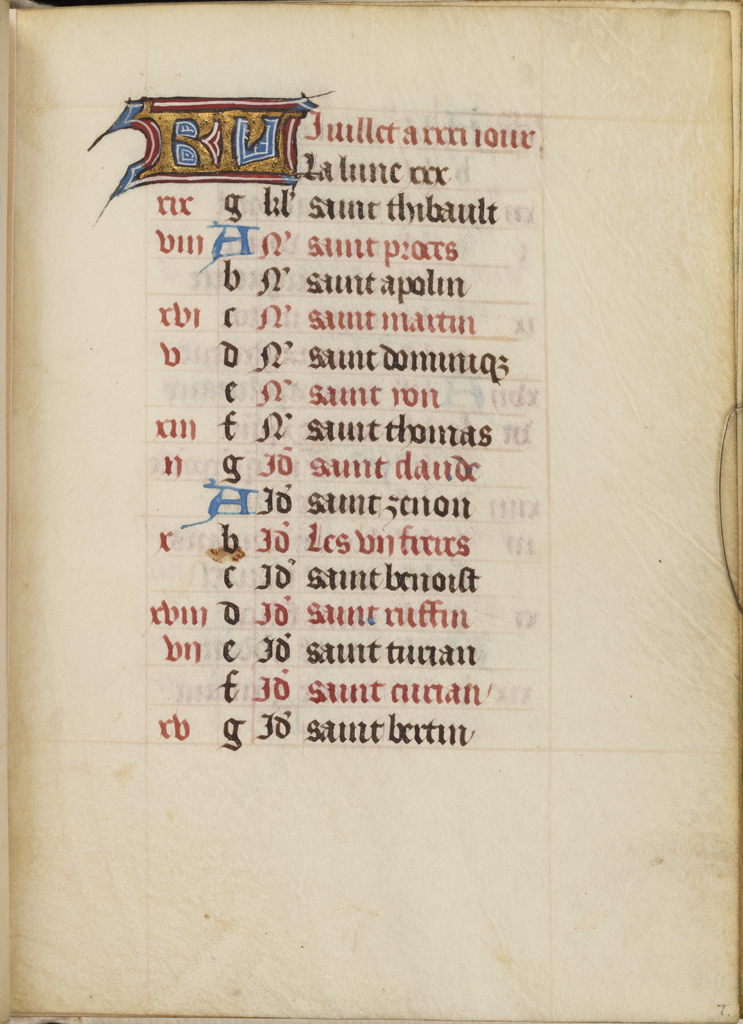 KL Juillet a xxxi iour.
La lune xxx
xix g kl' saint thibault
viii A N' saint proces
b N' saint apolin
xvi c N' saint martin
v d N' saint dominiq3
e N' saint yon
xiii f N' saint thomas
ii g Id' saint claude
A Id' saint zenon
x b Id' Les vii freres
c Id' saint benoist
xviii d Id' saint ruffin
vii e Id' saint turian
f Id' saint curian
xv g Id' saint bertin
7.